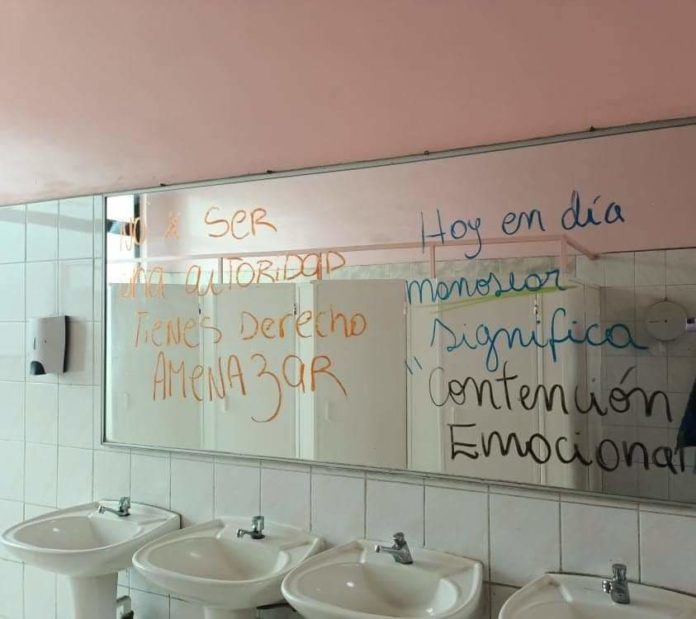 NO x SER
una autoridad
Tienes Derecho
AMENAZAR
Hoy en día
manosear
significa
"Contención
Emocional